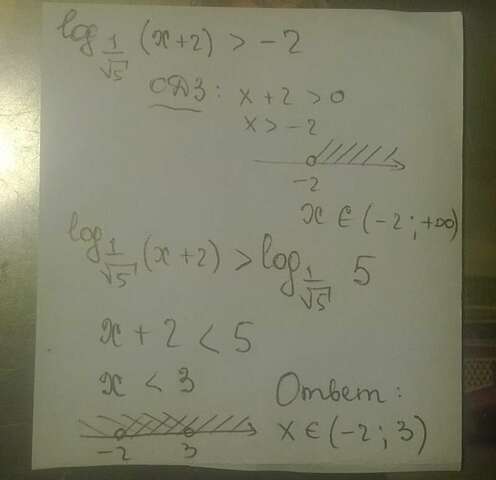 log 1/√5 (x+2) > -2
ОДЗ: x+2 >0
x > -2
-2
x ∈ (-2; +∞)
log 1/√5 (x+2) > log 1/√5 5
x + 2 < 5
x < 3
-2 3
Ответ:
x ∈ (-2; 3)